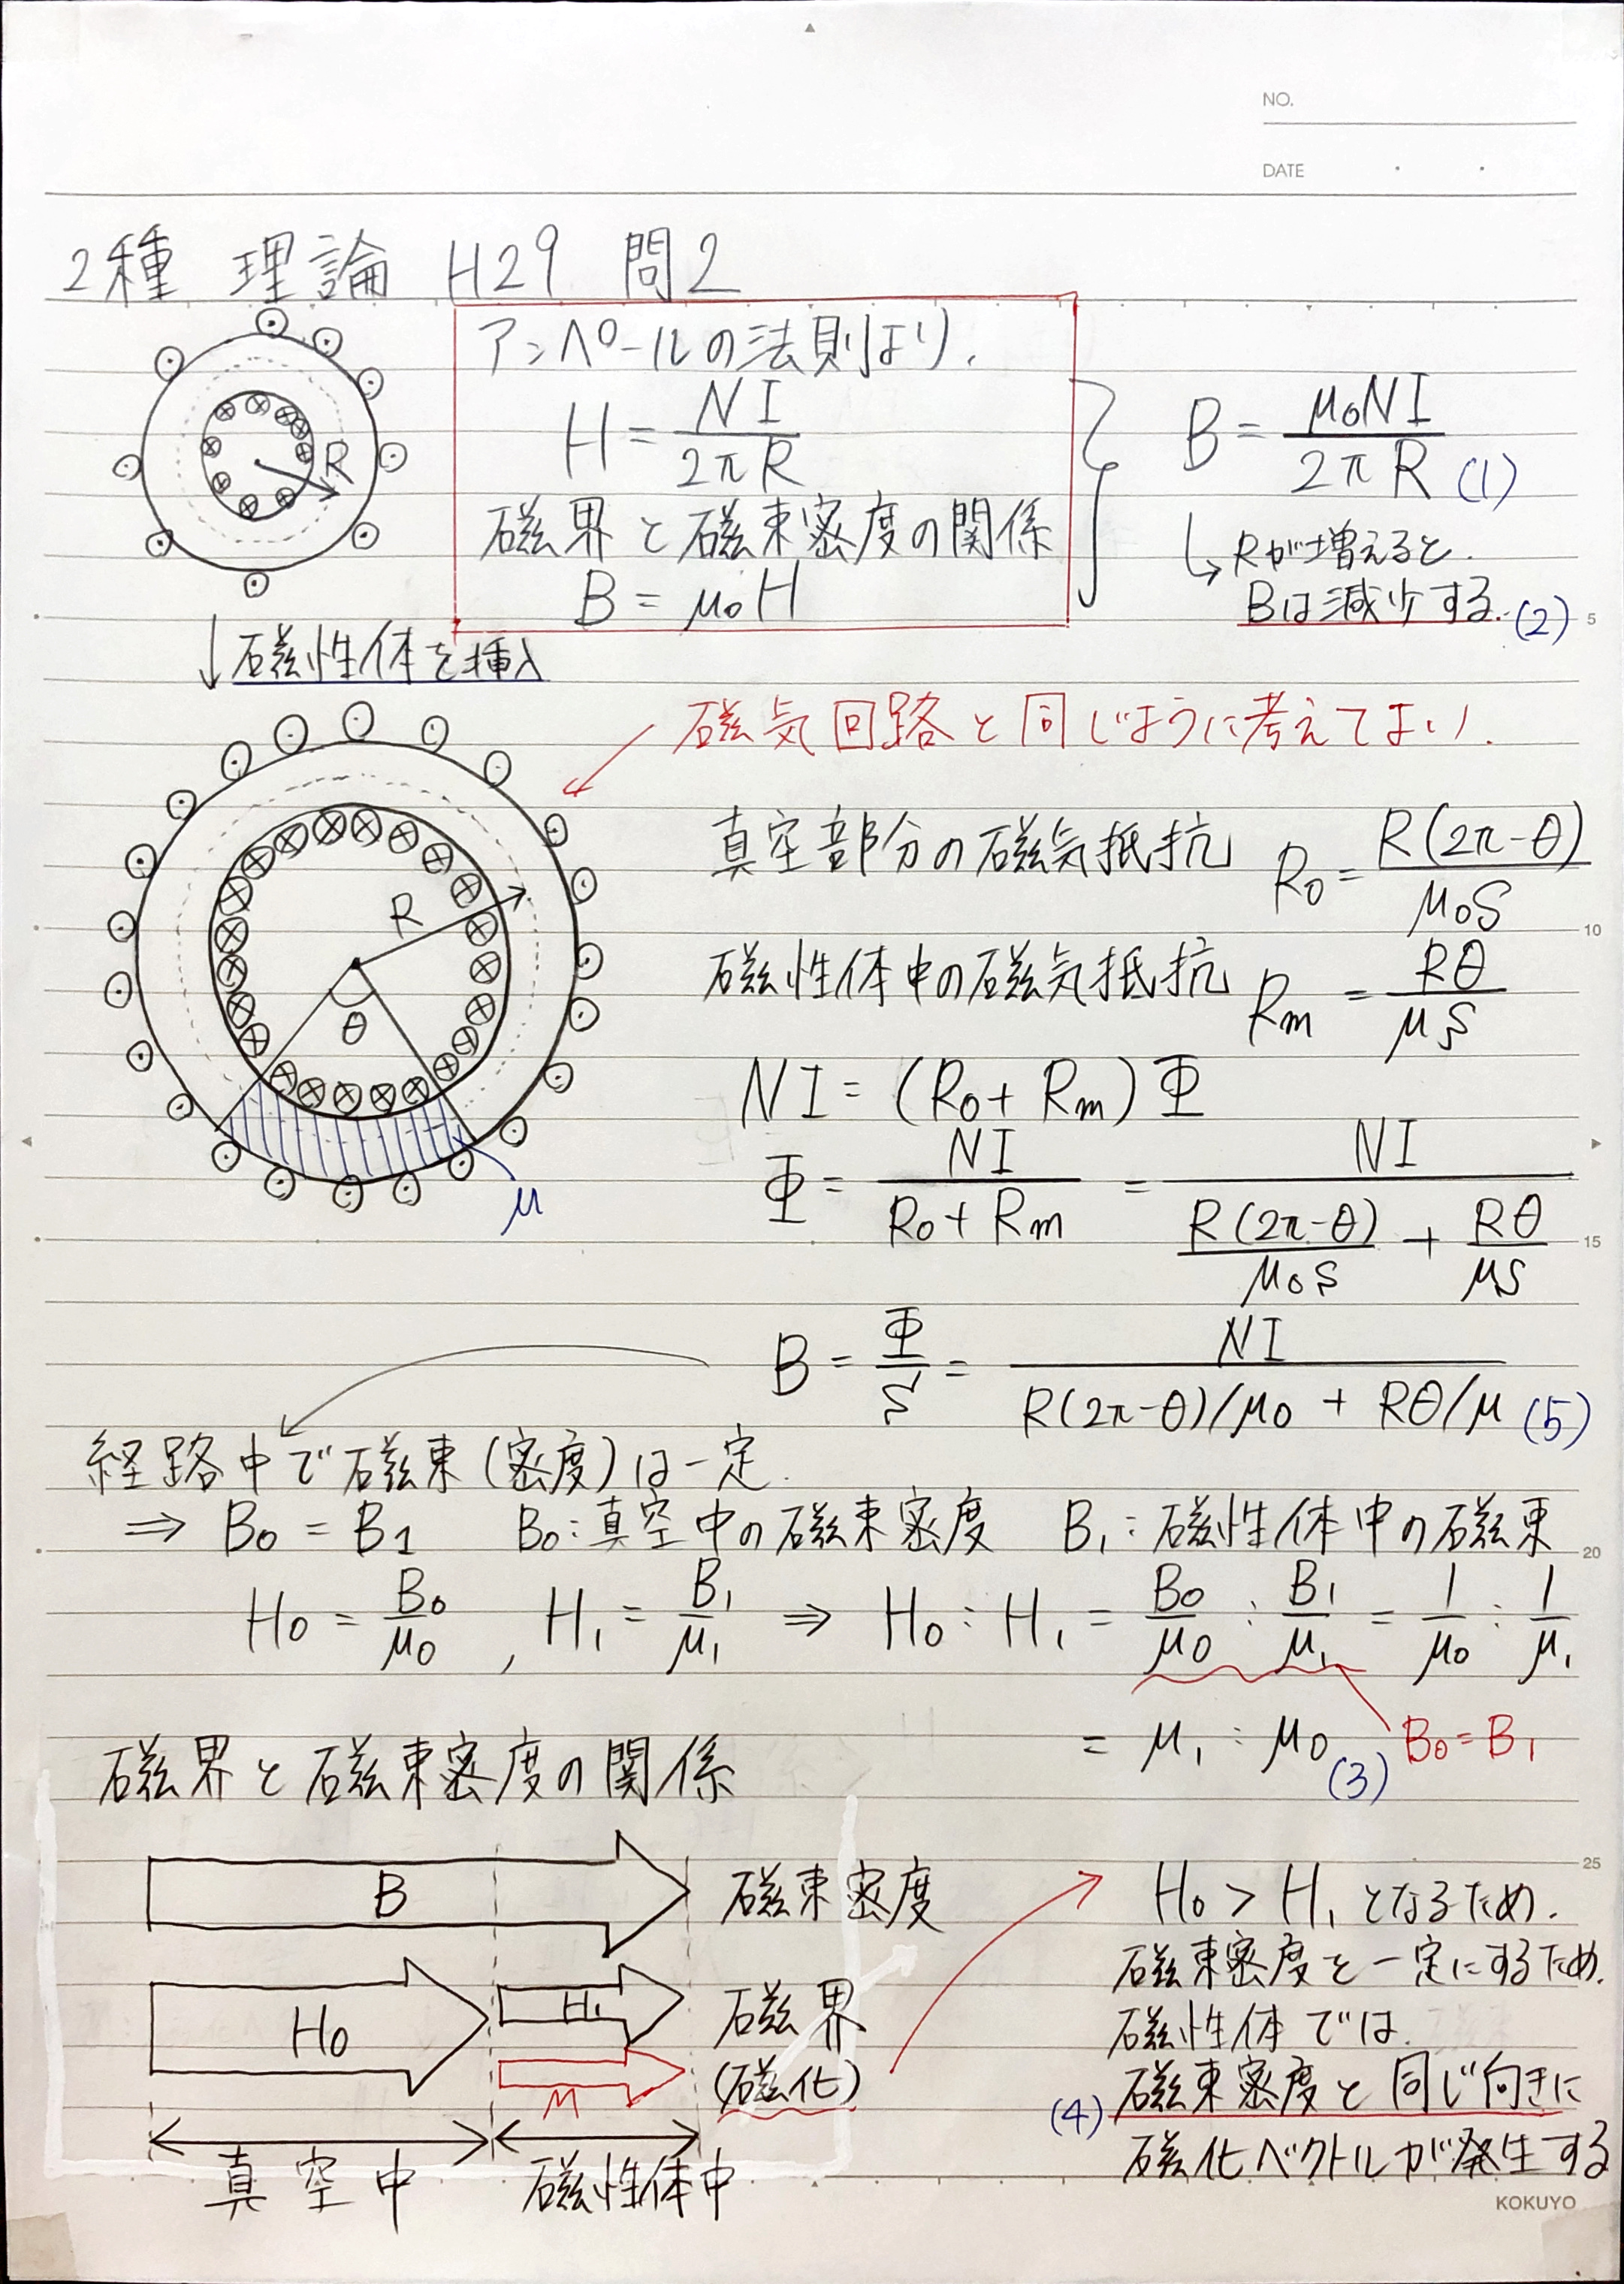 NO.
DATE
2種 理論 H29 問2
アンペールの法則より,
H = NI / 2πR
磁界と磁束密度の関係
B = μ₀H
B = μ₀NI / 2πR (1)
↳ Rが増えると.
Bは減少する. (2)
R
↓磁性体を挿入
磁気回路と同じように考えてよい.
真空部分の磁気抵抗 R₀ = R(2π-θ) / μ₀S
磁性体中の磁気抵抗 Rm = Rθ / μS
R
θ
μ
NI = (R₀ + Rm) Φ
Φ = NI / R₀ + Rm = NI / R(2π-θ) / μ₀S + Rθ / μS
B = Φ / S = NI / R(2π-θ)/μ₀ + Rθ/μ (5)
経路中で磁束(密度)は一定.
⇒ B₀ = B₁ B₀:真空中の磁束密度 B₁:磁性体中の磁束
H₀ = B₀ / μ₀ , H₁ = B₁ / μ₁ ⇒ H₀ : H₁ = B₀ / μ₀ : B₁ / μ₁ = 1 / μ₀ : 1 / μ₁
= μ₁ : μ₀ (3) B₀ = B₁
磁界と磁束密度の関係
B 磁束密度
H₀ H₁ 磁界
M (磁化)
真空中 磁性体中
H₀ > H₁ となるため.
磁束密度を一定にするため.
磁性体では.
(4) 磁束密度と同じ向きに
磁化ベクトルが発生する
5
10
15
20
25
KOKUYO